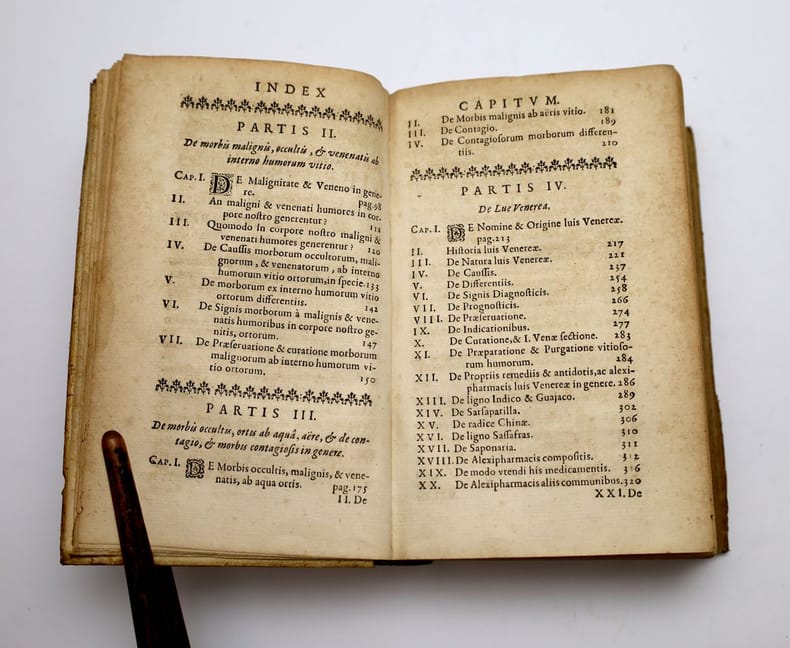 INDEX
PARTIS II.
De morbis malignis, occultis, & venenatis ab
interno humorum vitio.
CAP. I. DE Malignitate & Veneno in gene-
re. pag.98
II. An maligni & venenati humores in cor-
pore nostro generentur? 112
III. Quomodo in corpore nostro maligni &
venenati humores generentur? 120
IV. De Caussis morborum occultorum, mali-
gnorum, & venenatorum, ab interno
humorum vitio ortorum, in specie. 133
V. De morborum ex interno humorum vitio
ortorum differentiis. 142
VI. De Signis morborum à malignis & vene-
natis humoribus in corpore nostro ge-
nitis, ortorum. 147
VII. De Præseruatione & curatione morborum
malignorum ab interno humorum vi-
tio ortorum. 150
PARTIS III.
De morbis occultis, ortis ab aquâ, aëre, & de con-
tagio, & morbis contagiosis in genere.
CAP. I. DE Morbis occultis, malignis, & vene-
natis, ab aqua ortis. pag.175
II. De
CAPITVM.
II. De Morbis malignis ab aëris vitio. 181
III. De Contagio. 189
IV. De Contagiosorum morborum differen-
tiis. 210
PARTIS IV.
De Lue Venerea.
CAP. I. DE Nomine & Origine luis Venereæ.
pag.213
II. Historia luis Venereæ. 217
III. De Natura luis Venereæ. 221
IV. De Caussis. 237
V. De Differentiis. 254
VI. De Signis Diagnosticis. 258
VII. De Prognosticis. 266
VIII. De Præseruatione. 274
IX. De Indicationibus. 277
X. De Curatione, & I. Venæ sectione. 283
XI. De Præparatione & Purgatione vitioso-
rum humorum. 284
XII. De Propriis remediis & antidotis, ac alexi-
pharmacis luis Venereæ in genere. 286
XIII. De ligno Indico & Guajaco. 289
XIV. De Sarsaparilla. 302
XV. De radice Chinæ. 306
XVI. De ligno Sassafras. 310
XVII. De Saponaria. 311
XVIII. De Alexipharmacis compositis. 312
XIX. De modo vtendi his medicamentis. 316
XX. De Alexipharmacis aliis communibus. 320
XXI. De